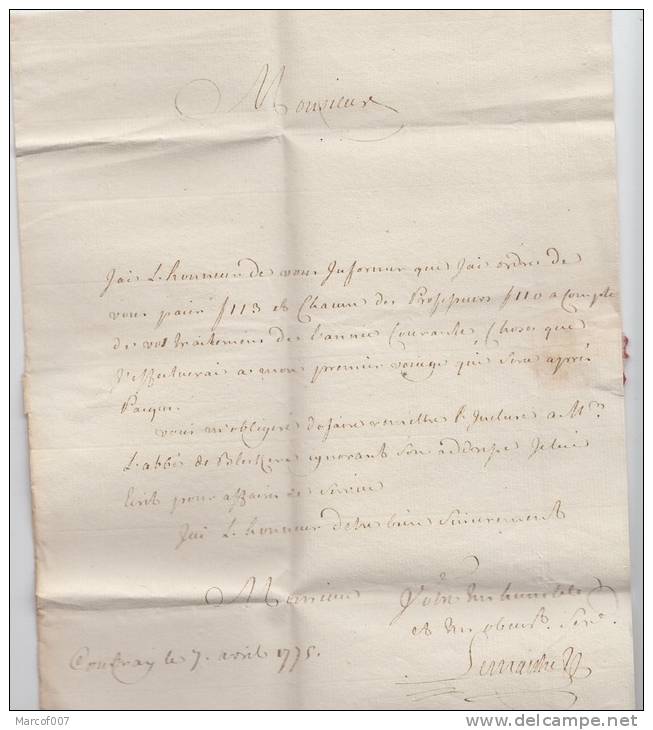 Monsieur
Jai L'honneur de vous Informer que Jai ordre de
vous paier f113 et Chacun des Professeurs f110 a Compte
de vos traitemens de l'année Courante, Chose que
J'effectuerai a mon premier voiage qui sera après
Paques.
vous m'obligeré de faire remettre l'Incluse a Mr.
L'abbé de ignorant son addresse Je lui
Ecrit pour affaire de Service
Jai L'honneur detre bien Sincerement
Monsieur Votre tres humble
et tres obeist. Serr.
Courtray le 7. avril 1775.
Marcof007
www.delcampe.net